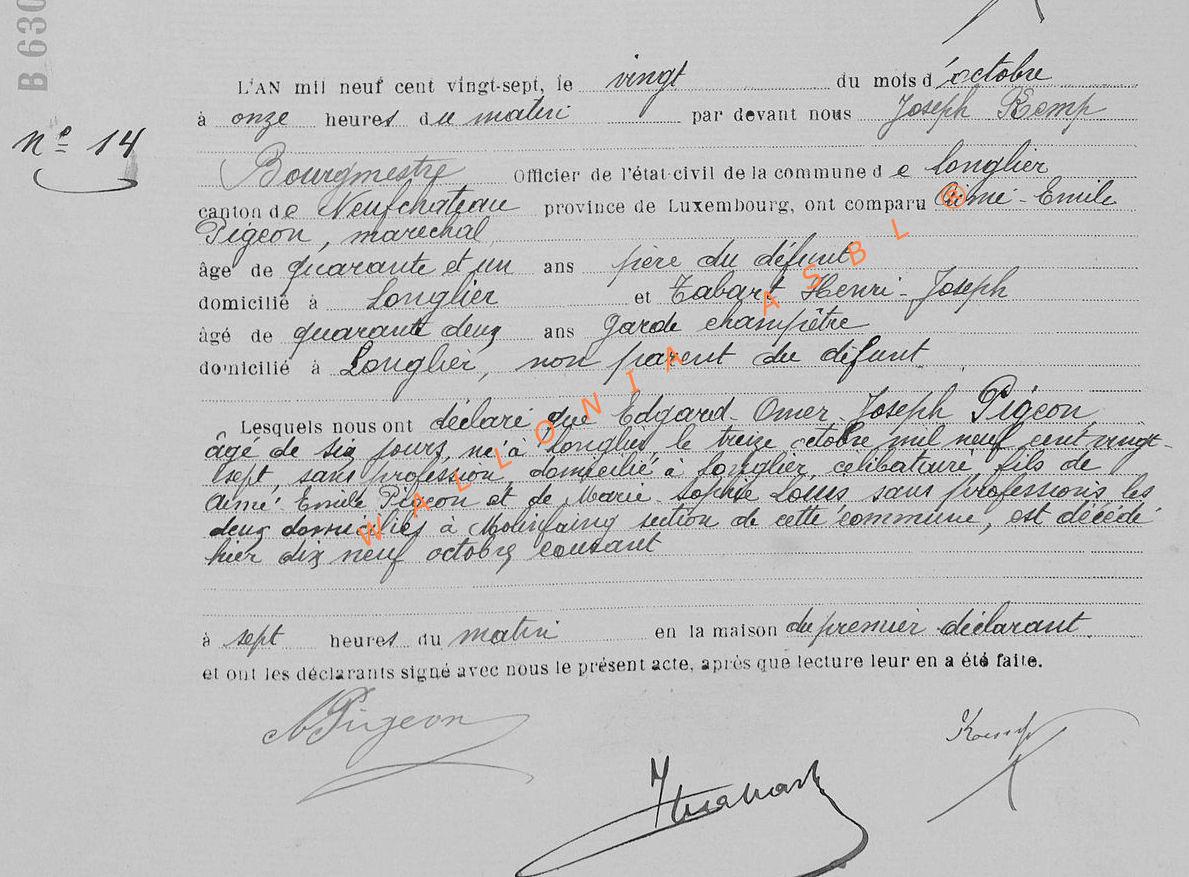 B 630
L'AN mil neuf cent vingt-sept, le vingt du mois d'octobre
à onze heures du matin par devant nous Joseph Kemp
nº 14
Bourgmestre Officier de l'état-civil de la commune de Longlier
canton de Neufchateau province de Luxembourg, ont comparu Aimé-Emile
Pigeon, maréchal
âge de quarante et un ans père du défunt
domicilié à Longlier et Tabart Henri-Joseph
âgé de quarante deux ans garde champêtre
domicilié à Longlier, non parent du défunt
Lesquels nous ont déclaré que Edgard-Omer-Joseph Pigeon
âgé de six jours, né à Longlier le treize octobre mil neuf cent vingt-
sept, sans profession domicilié à Longlier, célibataire, fils de
Aimé Emile Pigeon et de Marie Sophie Louis sans professions, les
deux domiciliés à Molinfaing section de cette commune, est décédé
hier dix neuf octobre courant
à sept heures du matin en la maison du premier déclarant
et ont les déclarants signé avec nous le présent acte, après que lecture leur en a été faite.
Pigeon
Kemp
WALLONIA ASBL ®